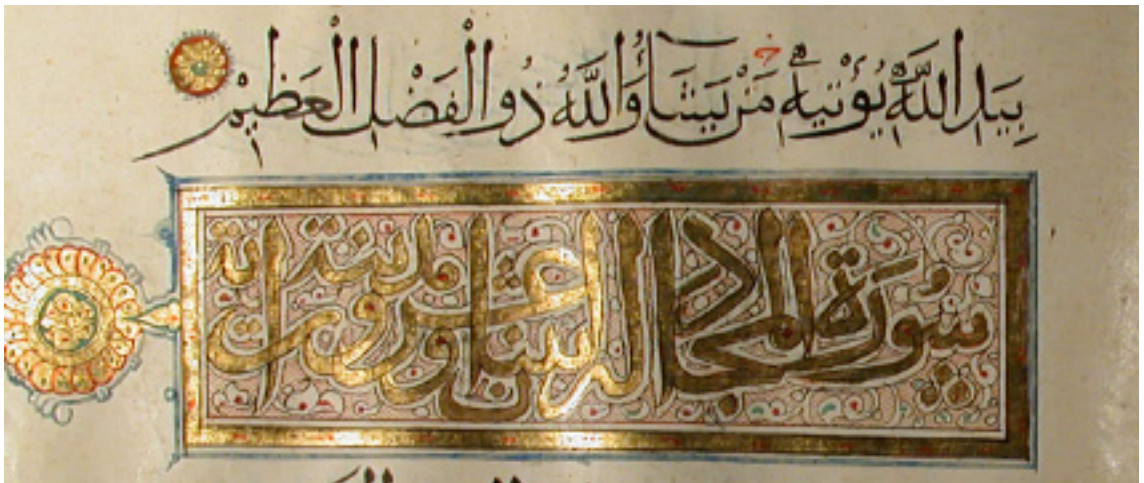 بِيَدِ اللَّهِ يُؤْتِيهِ مَنْ يَشَاءُ وَاللَّهُ ذُو الْفَضْلِ الْعَظِيمِ
سُورَة المجادلة اثنتان وعشرون اية مدنية